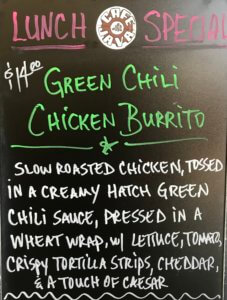 LUNCH SPECIAL
$14.00
GREEN CHILI
CHICKEN BURRITO
SLOW ROASTED CHICKEN, TOSSED
IN A CREAMY HATCH GREEN
CHILI SAUCE, DRESSED IN A
WHEAT WRAP, W/ LETTUCE, TOMATO,
CRISPY TORTILLA STRIPS, CHEDDAR,
& A TOUCH OF CAESAR